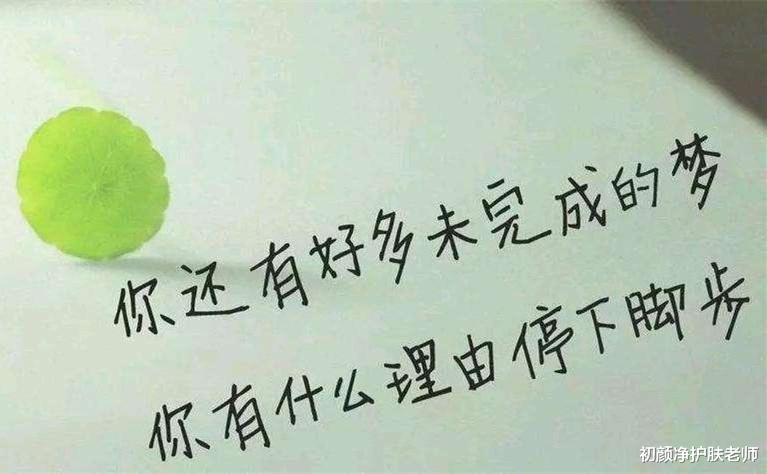 你还有好多未完成的梦
你有什么理由停下脚步
初颜净护肤老师